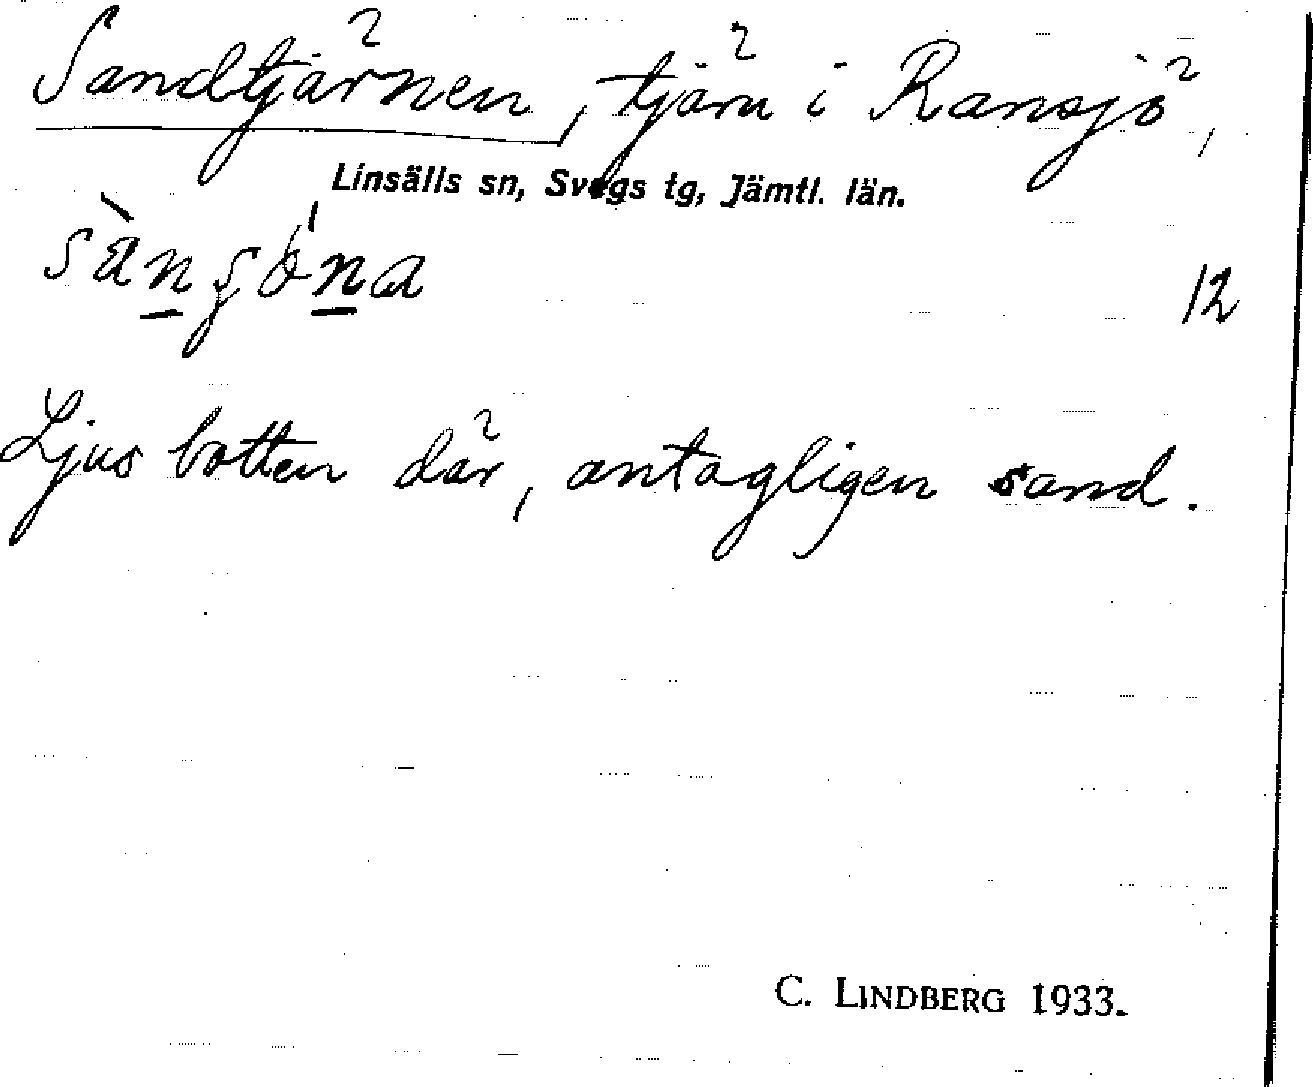 Sandtjärnen, tjärn i Ransjö,
Linsälls sn, Svegs tg, Jämtl. län.
12
Ljus botten där, antagligen sand.
C. LINDBERG 1933.